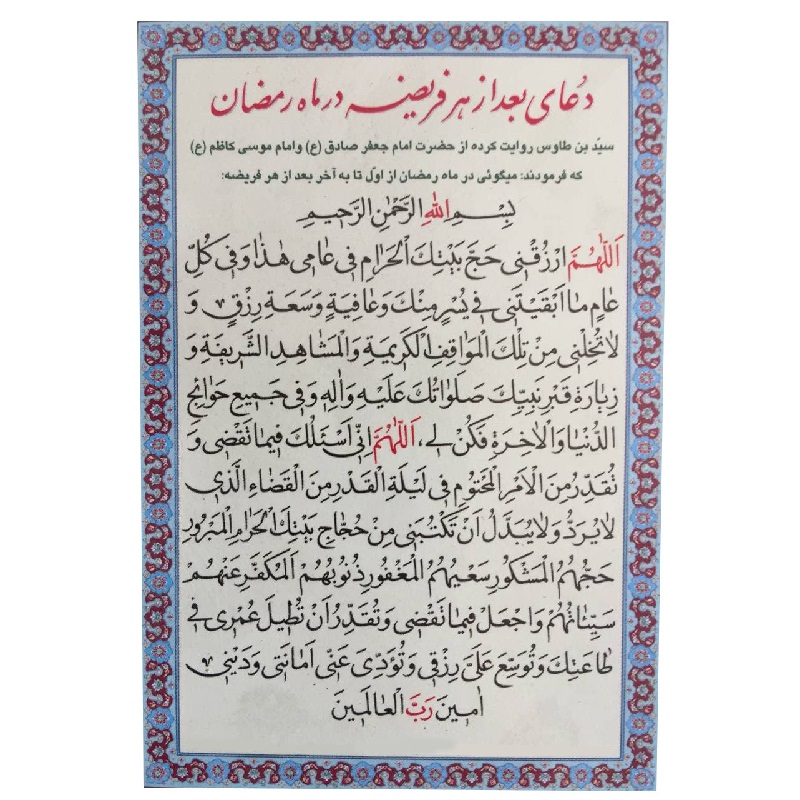 دعای بعد از هر فریضه در ماه رمضان
سیّد بن طاوس روایت کرده از حضرت امام جعفر صادق (ع) وامام موسی کاظم (ع)
که فرمودند: میگوئی در ماه رمضان از اوّل تا به آخر بعد از هر فریضه:
بِسْمِ اللهِ الرَّحْمٰنِ الرَّحیمِ
اَللّٰهُمَّ ارْزُقْنی حَجَّ بَیْتِكَ الْحَرامِ فی عامی هٰذا وَ فی كُلِّ
عامٍ ما اَبْقَیْتَنی فی یُسْرٍ مِنْكَ وَ عافِیَةٍ وَ سَعَةِ رِزْقٍ وَ
لا تُخْلِنی مِنْ تِلْكَ الْمَواقِفِ الْكَریمَةِ وَالْمَشاهِدِ الشَّریفَةِ وَ
زِیارَةِ قَبْرِ نَبِیِّكَ صَلَواتُكَ عَلَیْهِ وَ الِهِ وَ فی جَمیعِ حَوائِجِ
الدُّنْیا وَالْاخِرَةِ فَكُنْ لی، اَللّٰهُمَّ اِنّی اَسْئَلُكَ فیما تَقْضی وَ
تُقَدِّرُ مِنَ الْاَمْرِ الْمَحْتُومِ فی لَیْلَةِ الْقَدْرِ مِنَ الْقَضاءِ الَّذی
لا یُرَدُّ وَ لا یُبَدَّلُ اَنْ تَكْتُبَنی مِنْ حُجّاجِ بَیْتِكَ الْحَرامِ الْمَبْرُورِ
حَجُّهُمُ الْمَشْكُورِ سَعْیُهُمُ الْمَغْفُورِ ذُنُوبُهُمْ الْمُكَفَّرِ عَنْهُمْ
سَیِّئاتُهُمْ وَاجْعَلْ فیما تَقْضی وَ تُقَدِّرُ اَنْ تُطیلَ عُمْری فی
طاعَتِكَ وَ تُوَسِّعَ عَلَیَّ رِزْقی وَ تُؤَدِّیَ عَنّی اَمانَتی وَ دَیْنی
امینَ رَبَّ الْعالَمینَ